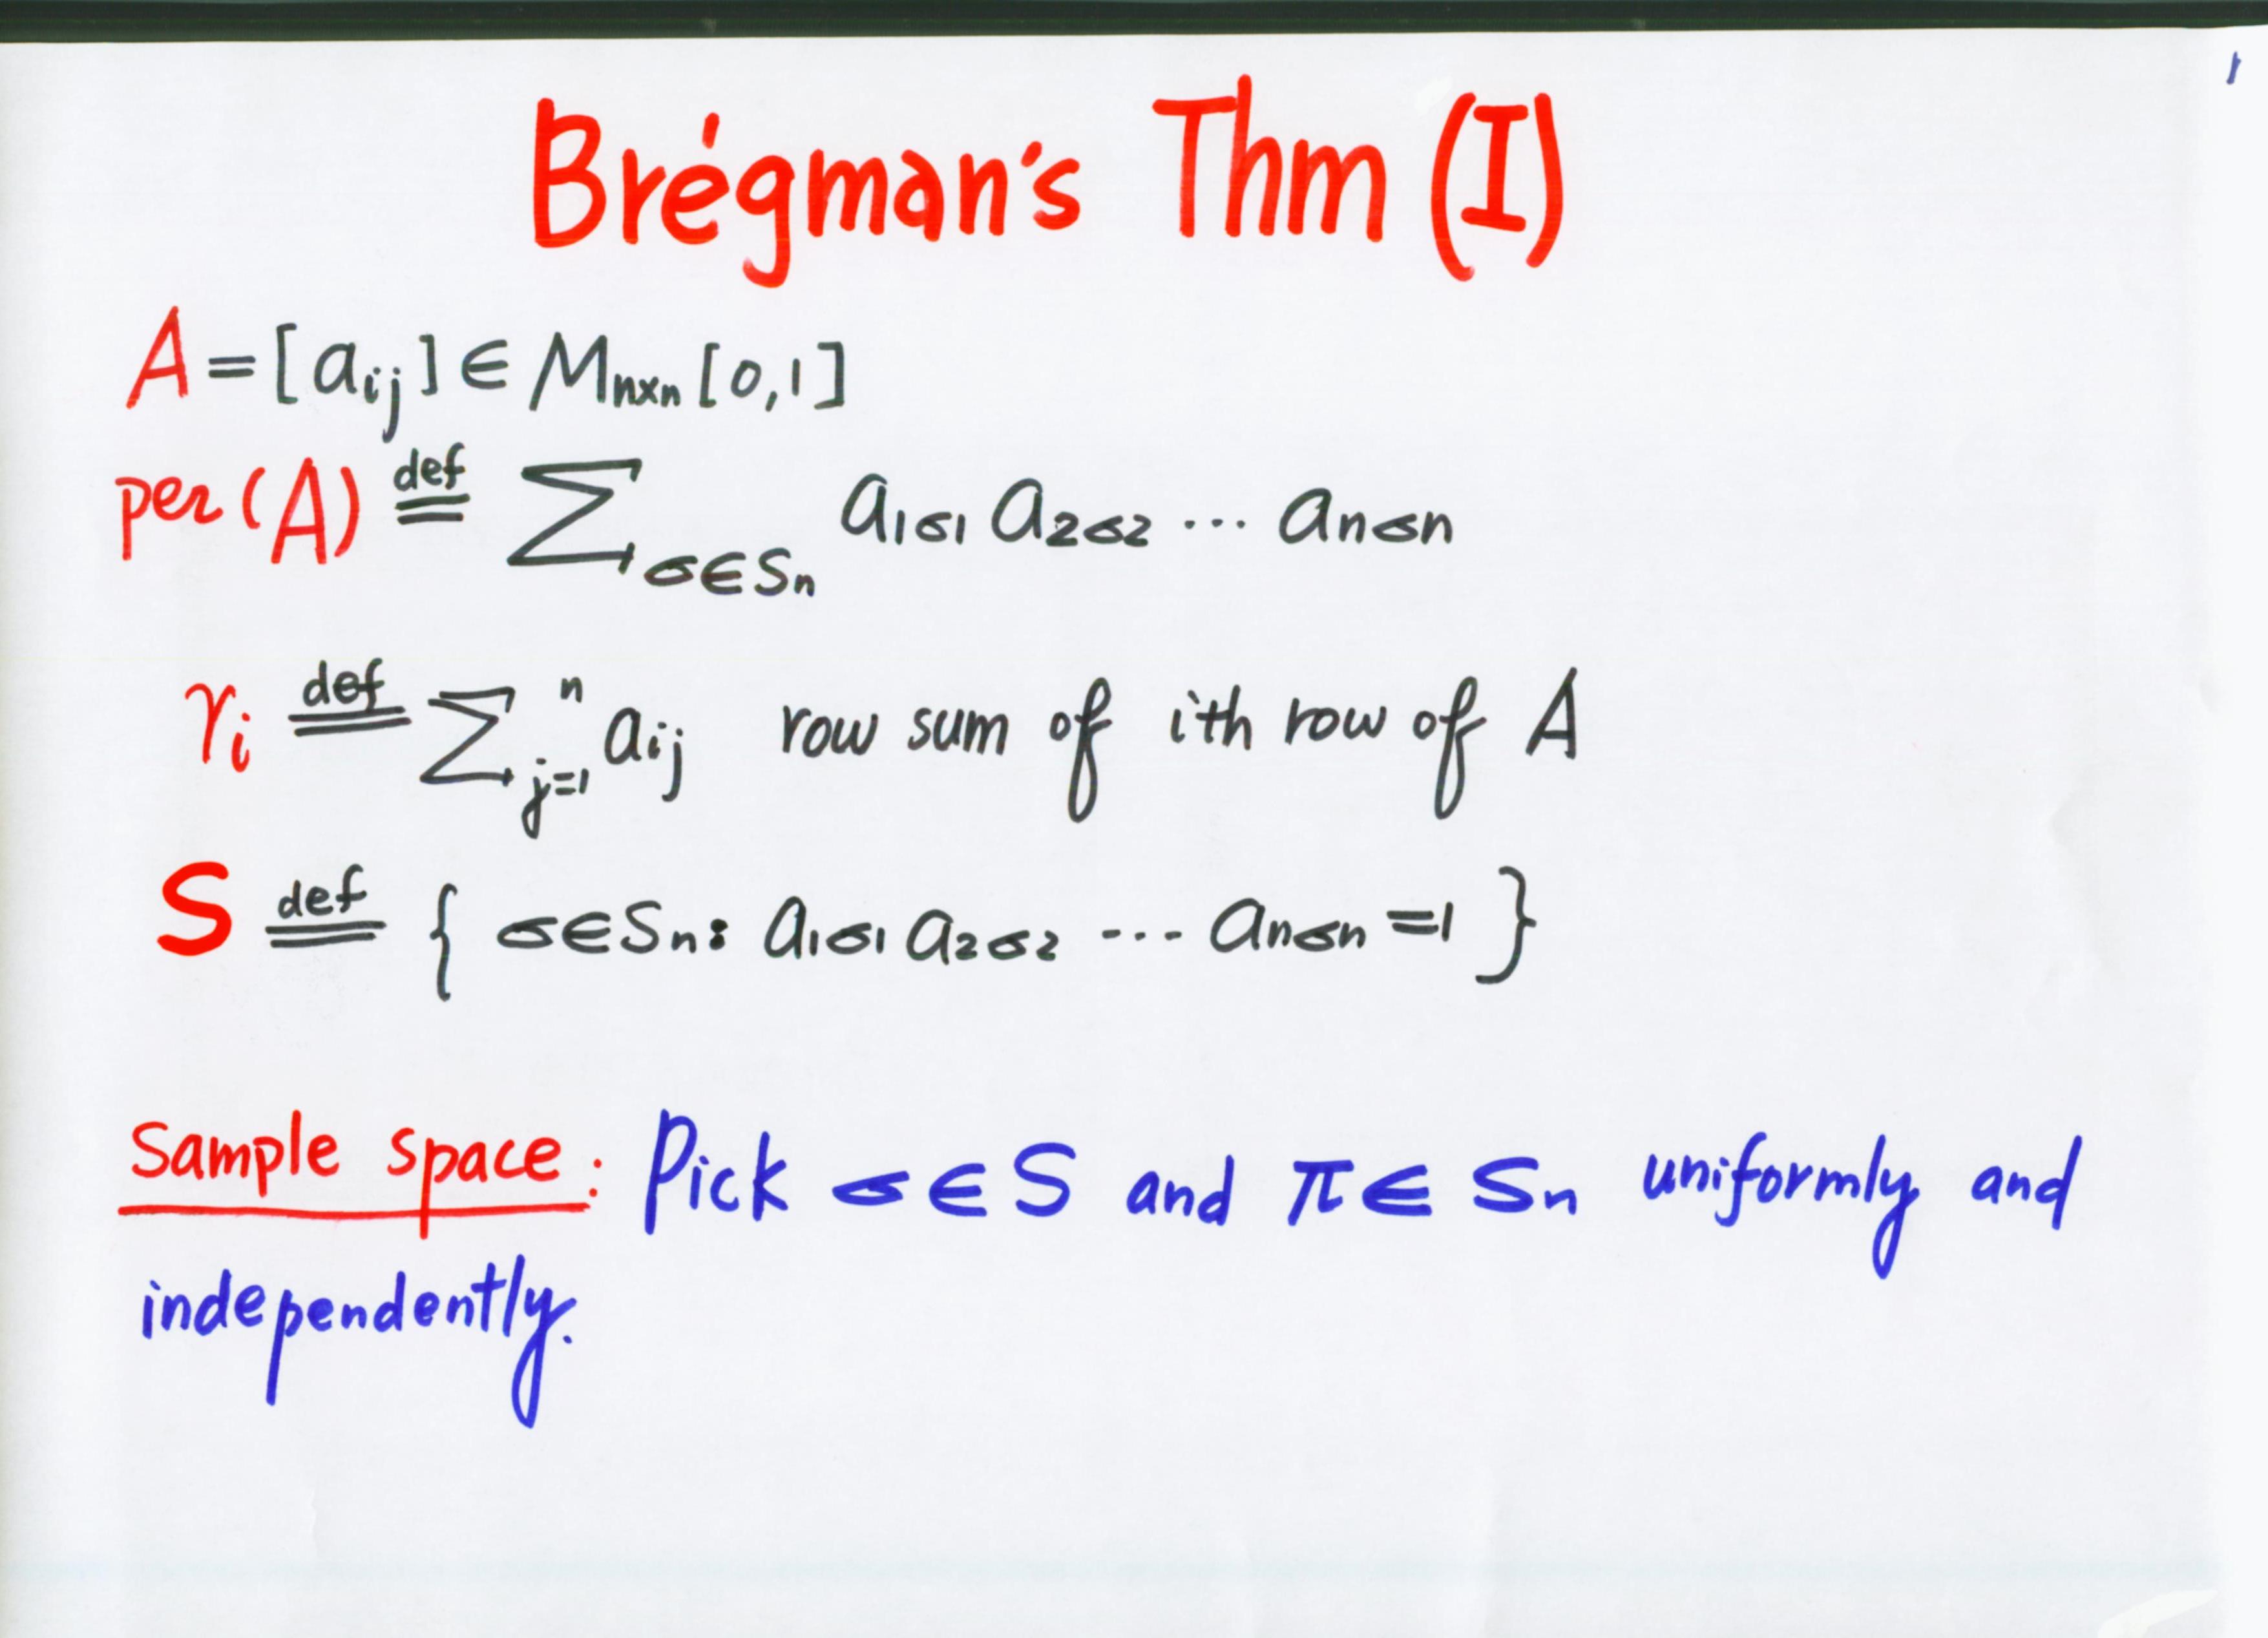 1
Brégman's Thm (I)
A = [aij] ∈ Mn×n [0,1]
per(A) def= ∑σ∈Sn a1σ1 a2σ2 ··· anσn
ri def= ∑j=1n aij row sum of ith row of A
S def= { σ∈Sn: a1σ1 a2σ2 ··· anσn =1 }
Sample space: Pick σ∈S and π∈Sn uniformly and
independently.